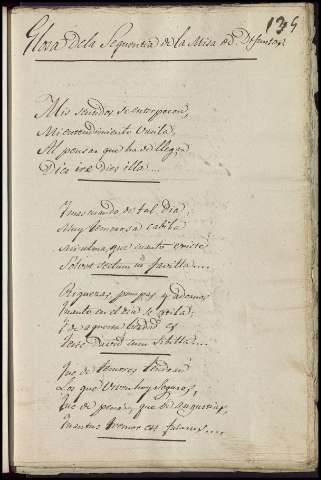 135
Glosa de la Sequentia de la Misa de Difuntos
Mis sentidos se entorpecen,
Mi entendimiento vacila,
Al pensar que ha de llegar
Dies iræ dies illa...
Y más cuando de tal dia
Muy temerosa cabila
Mi alma, que cuanto existe
Solvet seclum in favilla...
Riquezas, pompas y adornos
Cuanto en el dia se
verdad es
Teste David cum Sibilla...
Que de temores tendran
Los que viven hoy seguros,
Que de penas, que de angustias,
Quantus tremor est futurus...